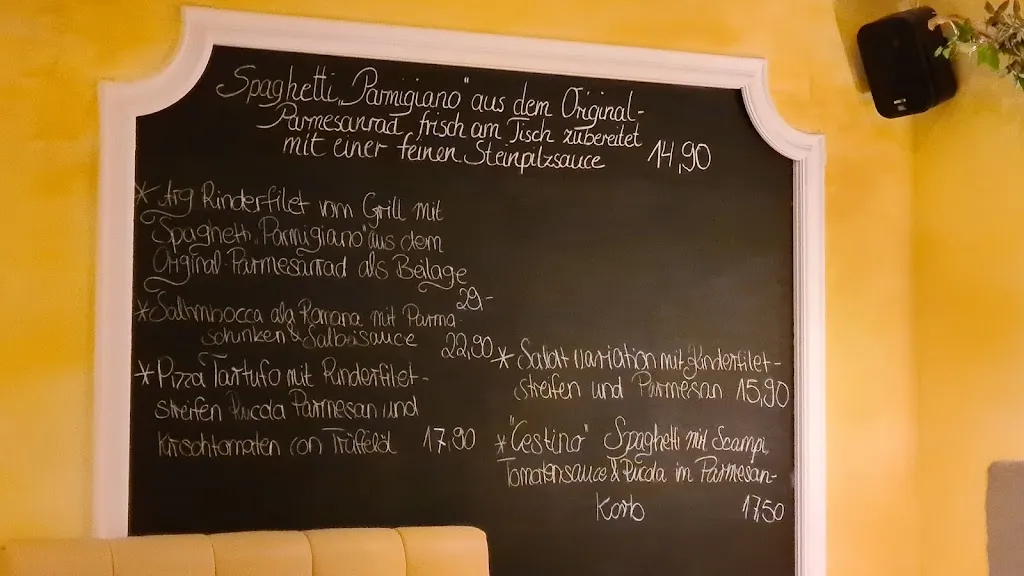 Spaghetti „Parmigiano" aus dem Original-
Parmesanrad, frisch am Tisch zubereitet
mit einer feinen Steinpilzsauce 14,90
* Arg Rinderfilet vom Grill mit
Spaghetti „Parmigiano" aus dem
Original-Parmesanrad als Beilage
29,-
* Saltimbocca alg Romana mit Parma
schinken & Salbeisauce 22,90
* Pizza Tartufo mit Rinderfilet-
streifen Rucola Parmesan und
Kirschtomaten con Trüffelöl 17,90
* Salat variation mit Rinderfilet-
streifen und Parmesan 15,90
* "Cestino" Spaghetti mit Scampi,
Tomatensauce & Rucola im Parmesan-
Korb 17,50